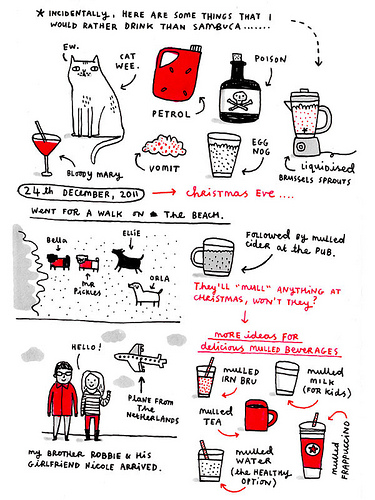 * INCIDENTALLY, HERE ARE SOME THINGS THAT I
WOULD RATHER DRINK THAN SAMBUCA.......
EW.
CAT
WEE.
PETROL
POISON
BLOODY MARY
VOMIT
EGG
NOG
LIQUIDISED
BRUSSELS SPROUTS
24th DECEMBER, 2011 → Christmas Eve....
WENT FOR A WALK ON THE BEACH.
Bella
ELLIE
MR
PICKLES
ORLA
FOLLOWED BY MULLED
CIDER AT THE PUB.
They'LL "MULL" ANYTHING AT
CHRISTMAS, WON'T THEY?
MORE IDEAS FOR
delicious MULLED BEVERAGES
mulled
IRN BRU
mulled
MILK
(FOR KIDS)
mulled
TEA
mulled
WATER
(the HEALTHY
OPTION)
mulled
FRAPPUCCINO
HELLO!
PLANE FROM
THE
NETHERLANDS
MY BROTHER ROBBIE & HIS
GIRLFRIEND NICOLE ARRIVED.